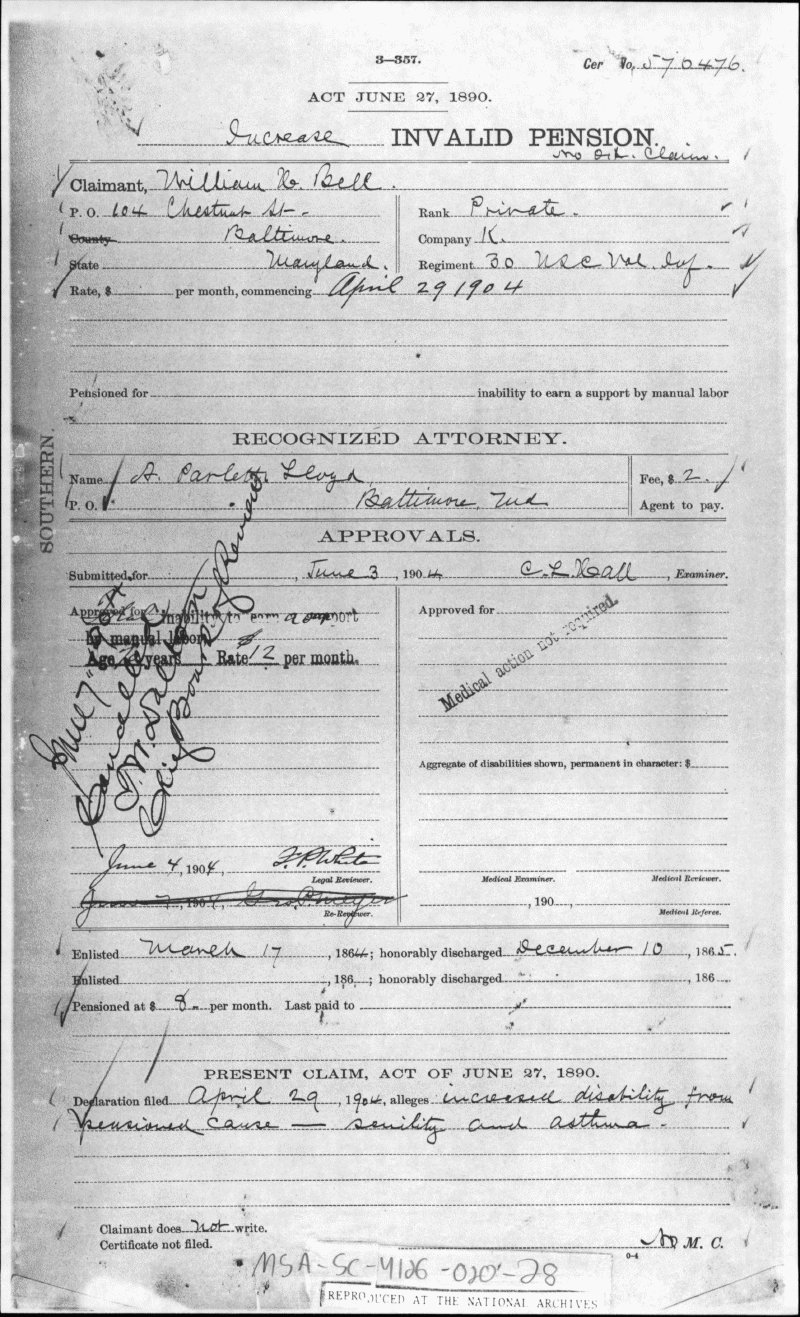 3—357.
Cer No, 570476.
ACT JUNE 27, 1890.
Increase INVALID PENSION.
No Claim.
Claimant, William H. Bell.
P. O. 104 Chestnut St.
Rank Private.
County Baltimore.
Company K.
State Maryland.
Regiment 30 USC Vol. Inf.
Rate, $ per month, commencing April 29 1904
Pensioned for inability to earn a support by manual labor
SOUTHERN.
RECOGNIZED ATTORNEY.
Name A. Parlett Lloyd,
Fee, $ 2.
P. O. Baltimore, Md
Agent to pay.
APPROVALS.
Submitted for , June 3, 1904 C. L. Hall, Examiner.
Approved for inability to earn a support
by manual labor
Age, years Rate $12 per month.
June 7"
Cancelled
Chief Board of Review
Approved for
Medical action not required.
Aggregate of disabilities shown, permanent in character: $
June 4, 1904, F. P. White
Legal Reviewer.
Medical Examiner.
Medical Reviewer.
June 7, 1904, Geo. P. Meyer
Re-Reviewer.
, 190 ,
Medical Referee.
Enlisted March 17, 1864; honorably discharged December 10, 1865.
Enlisted , 186 ; honorably discharged , 186
Pensioned at $ 8. per month. Last paid to
PRESENT CLAIM, ACT OF JUNE 27, 1890.
Declaration filed April 29, 1904, alleges increased disability from
pensioned cause — senility and asthma.
Claimant does not write.
Certificate not filed.
No M. C.
0-4
MSA-SC-4126-020-28
REPRODUCED AT THE NATIONAL ARCHIVES